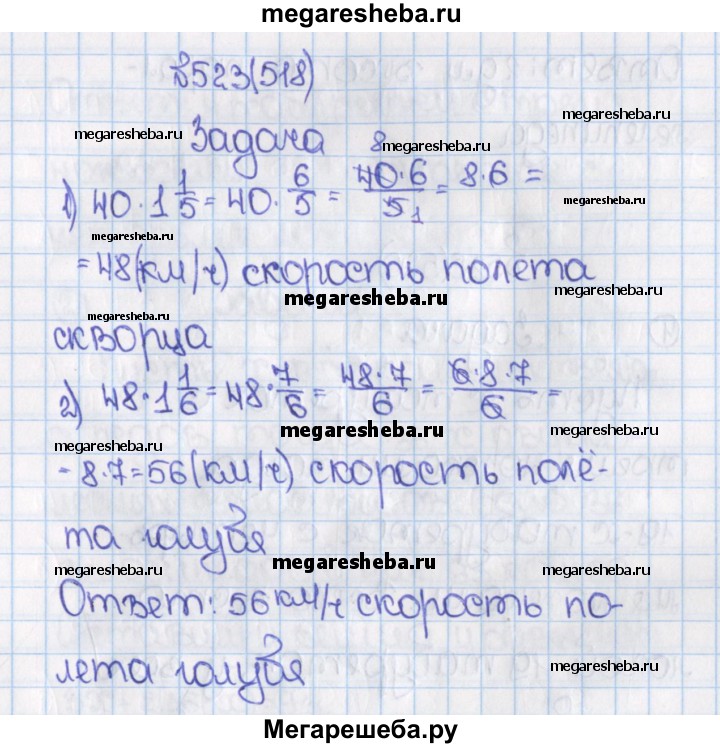 megaresheba.ru
№523(518)
megaresheba.ru
megaresheba.ru Задача
1) 40·1 1/5 = 40· 6/5 = 40·6/5 = 8·6 =
8 1
megaresheba.ru
megaresheba.ru
=48(км/ч) скорость полета
megaresheba.ru
megaresheba.ru
megaresheba.ru
скворца
2) 48·1 1/6 = 48· 7/6 = 48·7/6 = 6·8·7/6 =
megaresheba.ru
megaresheba.ru
megaresheba.ru
- 8·7=56(км/ч) скорость полё-
та голубя
megaresheba.ru
megaresheba.ru
megaresheba.ru
Ответ: 56 км/ч скорость по-
лета голубя
megaresheba.ru
megaresheba.ru
Мегарешеба.ру